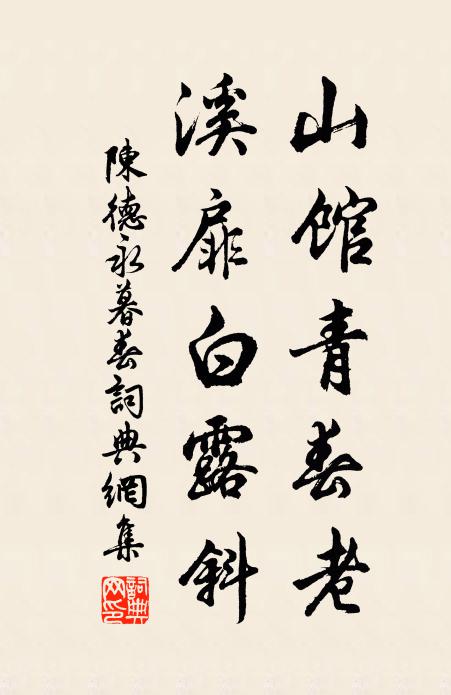 山馆青春老
溪扉白露斜
陳德永暮春詞典網集
詞典网印